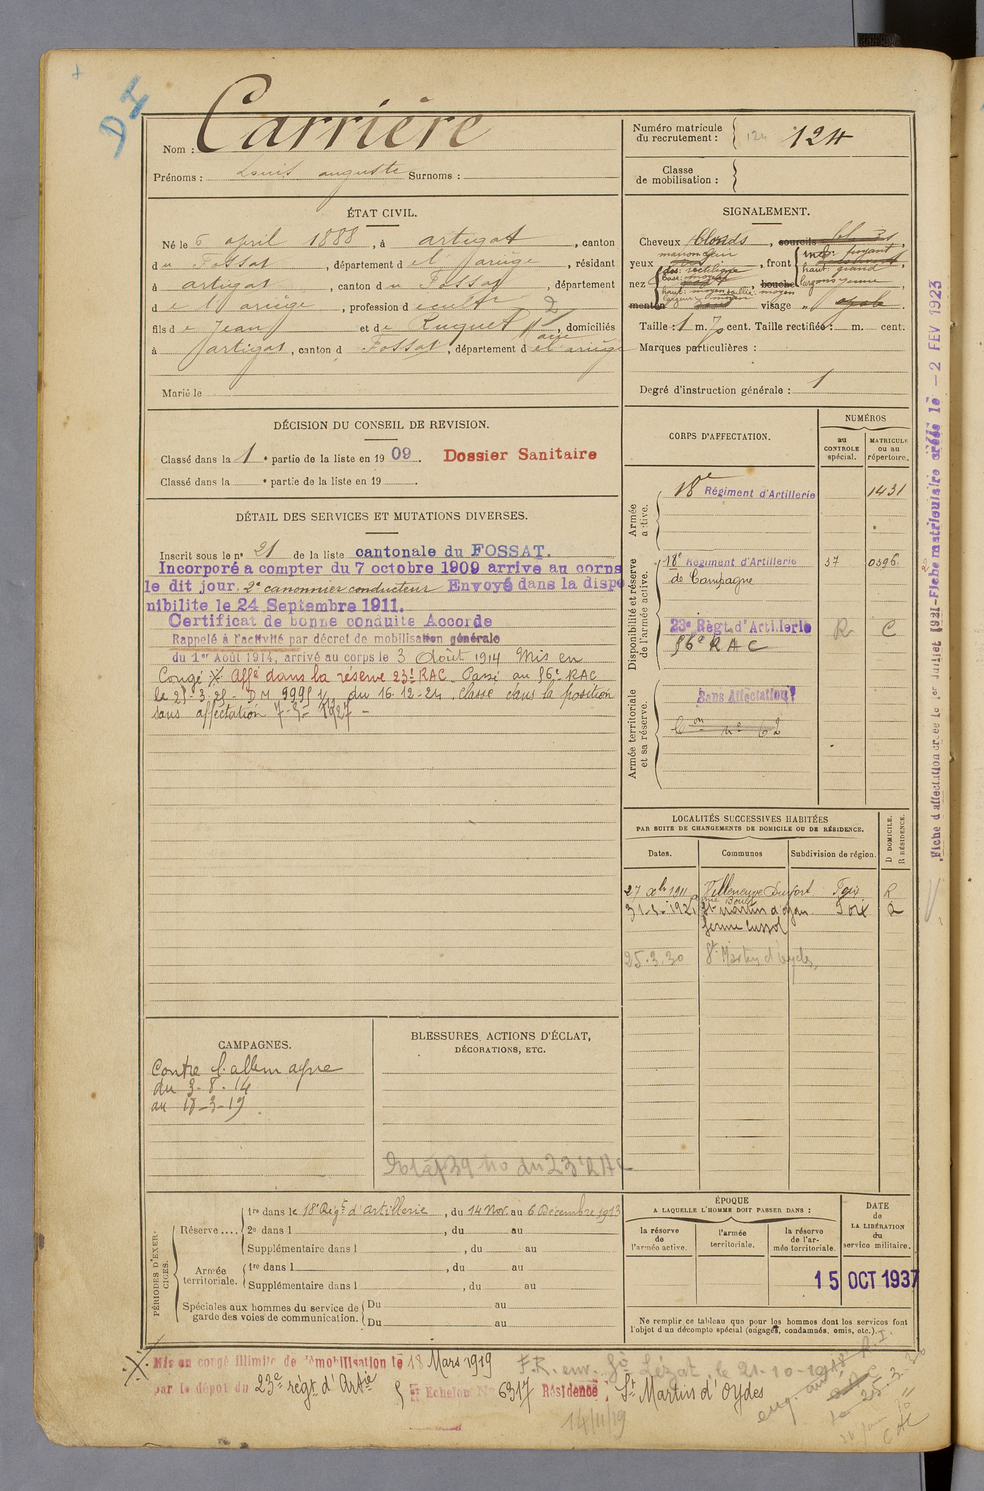 D I
Nom : Carrière
Prénoms : Louis auguste Surnoms :
Numéro matricule du recrutement : 124 124
Classe de mobilisation :
ÉTAT CIVIL.
Né le 6 april 1888, à artigat, canton
du Fossat, département de l'ariège, résidant
à artigat, canton du Fossat, département
de l'ariège, profession de cultr
fils de Jean et de Ruquet, domiciliés
à artigat, canton d Fossat, département de l'ariège
Marié le
SIGNALEMENT.
Cheveux blonds, sourcils blonds,
yeux marron clair, front incl: fuyant
haut: grand
nez dos: rectiligne
base: moyen
haut: moyen saillie: moyen
bouche larg: moyenne
menton visage ovale
Taille : 1 m. 70 cent. Taille rectifiée : m. cent.
Marques particulières :
Degré d'instruction générale : 1
DÉCISION DU CONSEIL DE REVISION.
Classé dans la 1 e partie de la liste en 1909. Dossier Sanitaire
Classé dans la e partie de la liste en 19
DÉTAIL DES SERVICES ET MUTATIONS DIVERSES.
Inscrit sous le n° 21 de la liste cantonale du FOSSAT.
Incorporé a compter du 7 octobre 1909 arrive au corps
le dit jour. 2e canonnier conducteur Envoyé dans la dispo
nibilite le 24 Septembre 1911.
Certificat de bonne conduite Accorde
Rappelé à l'activité par décret de mobilisation générale
du 1er Août 1914, arrivé au corps le 3 Août 1914 Mis en
Congé X Affé dans la réserve 23e RAC. Passé au 56e RAC
le 25-3-25 - DM 9995 1/ du 16-12-24 classé dans la position
sans affectation 7-3-1927 -
CORPS D'AFFECTATION.
NUMÉROS
au CONTROLE spécial.
MATRICULE ou au répertoire.
Armée active.
18e Régiment d'Artillerie 1431
Disponibilité et réserve de l'armée active.
18e Régiment d'Artillerie 37 0396
de Campagne
23e Régt. d'Artillerie R C
56e R A C
Armée territoriale et sa réserve.
Sans Affectation
Con n° 62
LOCALITÉS SUCCESSIVES HABITÉES
PAR SUITE DE CHANGEMENTS DE DOMICILE OU DE RÉSIDENCE.
Dates. Communes Subdivision de région. D DOMICILE. R RÉSIDENCE.
27 1911 Villeneuve Durfort Foix R
St martin d'oydes Foix R
ferme
25.3.30 St Martin d'oydes
CAMPAGNES.
Contre l'allemagne
du 3-8-14
au 17-3-19
BLESSURES, ACTIONS D'ÉCLAT,
DÉCORATIONS, ETC.
du 23e RAC
PÉRIODES D'EXERCICES.
Réserve....
1re dans le 18e Régt d'artillerie, du 14 Nov. au 6 Décembre 1913
2e dans l , du au
Supplémentaire dans l , du au
Armée territoriale.
1re dans l , du au
Supplémentaire dans l , du au
Spéciales aux hommes du service de garde des voies de communication.
Du au
Du au
ÉPOQUE
A LAQUELLE L'HOMME DOIT PASSER DANS :
la réserve de l'armée active.
l'armée territoriale.
la réserve de l'armée territoriale.
DATE de LA LIBÉRATION du service militaire.
15 OCT 1937
Ne remplir ce tableau que pour les hommes dont les services font
l'objet d'un décompte spécial (engagés, condamnés, omis, etc.).
X Mis en congé illimité de démobilisation le 18 Mars 1919
par le dépot du 23e régt d'Artie Echelon N° 6317 Résidence, St Martin d'Oydes
F.R. env. Lézat, le 21-10-
14/11/19
Fiche d'affectation créée le 1er Juillet 1921 - Fiche matriculaire créée le - 2 FEV 1923